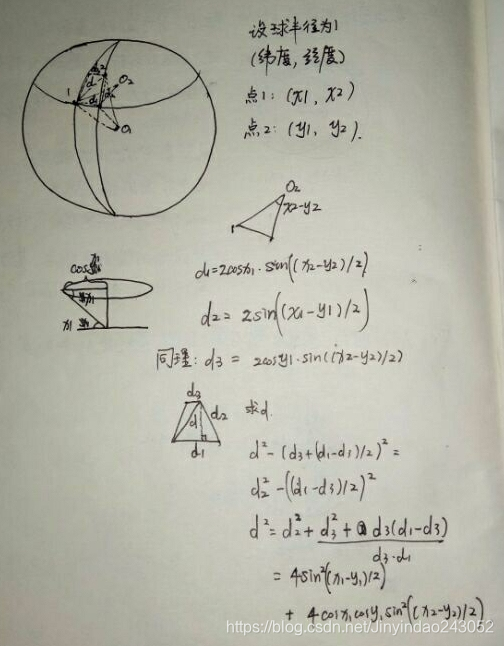 设球半径为1
(纬度, 经度)
点1: (x1, x2)
点2: (y1, y2).
1
2
O2
d
d1
O1
O2
x2-y2
1
cos x1
x1
d1=2cosx1·sin((x2-y2)/2)
d2= 2sin((x1-y1)/2)
同理: d3 = 2cosy1·sin((x2-y2)/2)
d3
d
d2
d1
求d.
d²-(d3+(d1-d3)/2)²=
d2²-((d1-d3)/2)²
d²=d2²+d3²+d3(d1-d3)
d3·d1
=4sin²((x1-y1)/2)
+ 4cosx1cosy1sin²((x2-y2)/2)
https://blog.csdn.net/Jinyindao243052